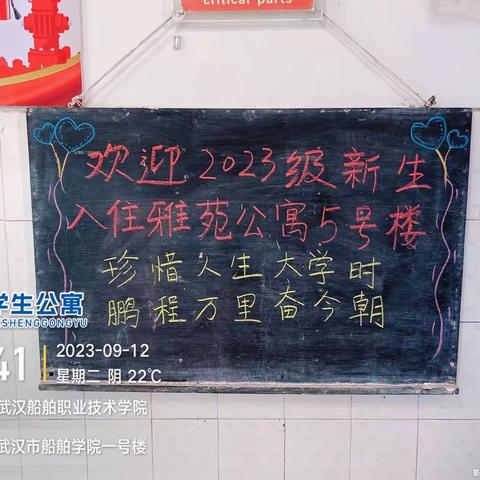 critical parts
欢迎2023级新生
入住雅苑公寓5号楼
珍惜人生大学时
鹏程万里奋今朝
学生公寓
SHENGGONGYU
41
2023-09-12
星期二 阴 22℃
武汉船舶职业技术学院
武汉市船舶学院一号楼
防